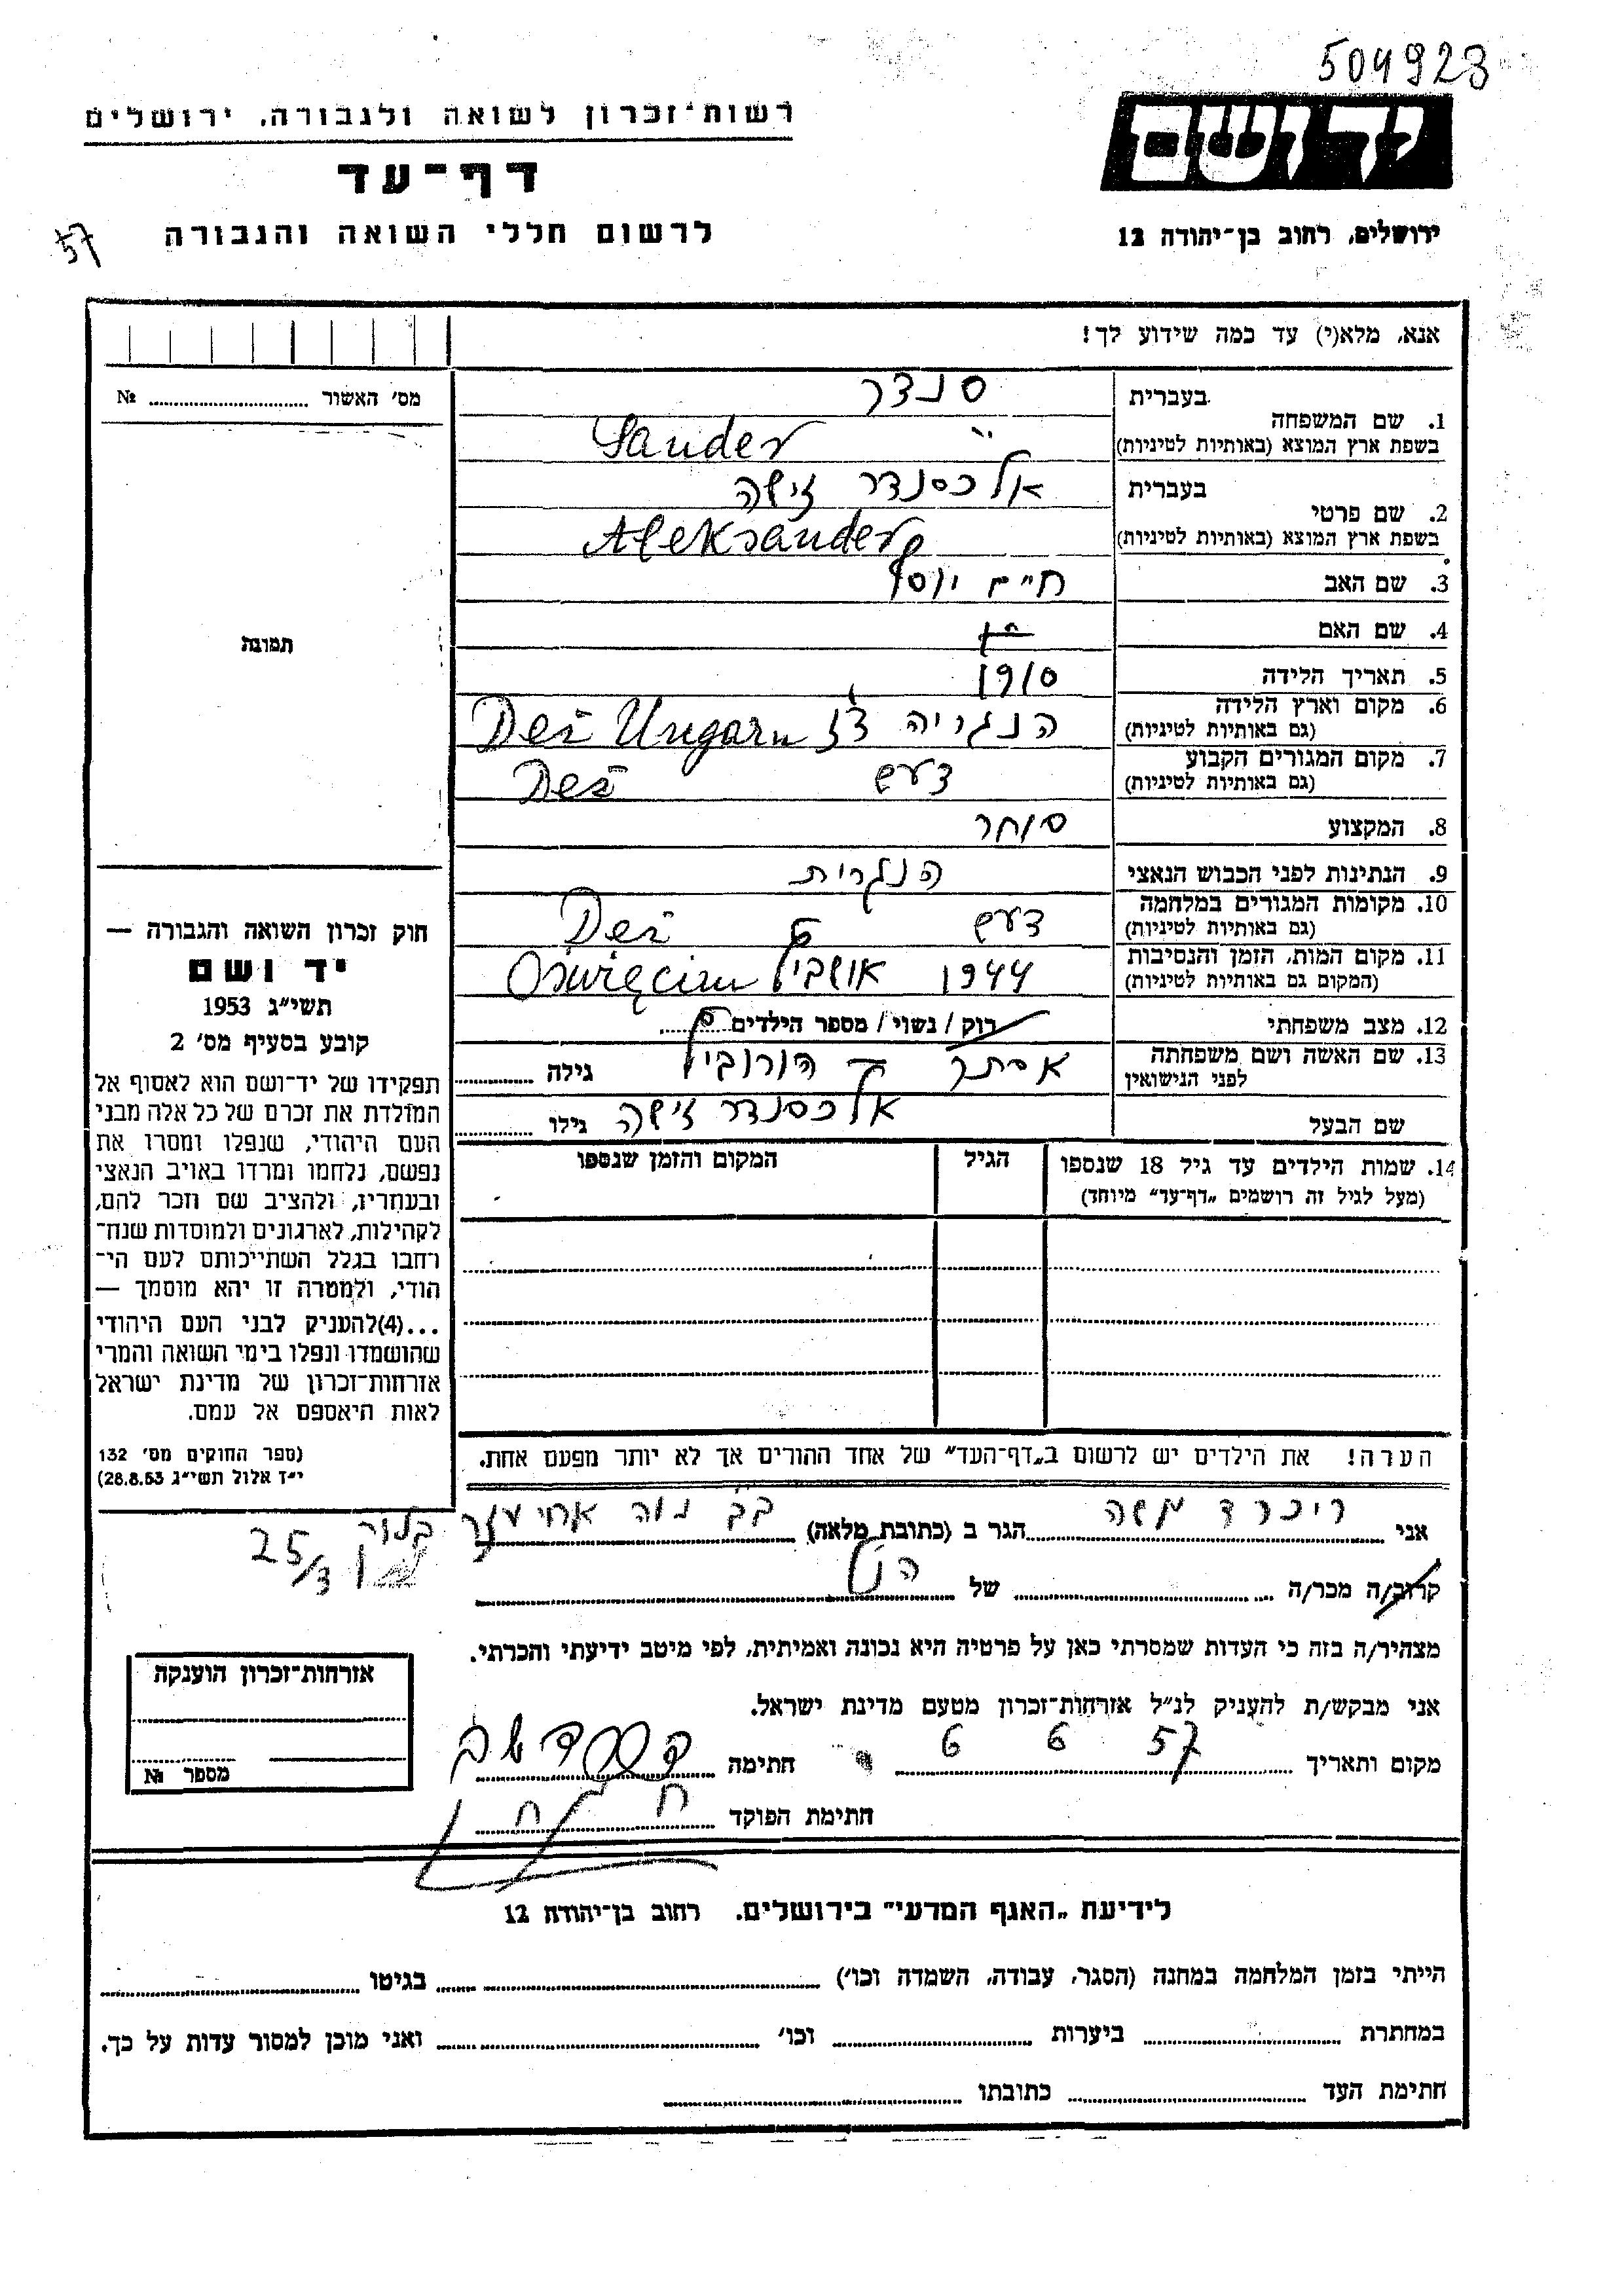 504923
רשות־זכרון לשואה ולגבורה, ירושלים
יד ושם
דף־עד
לרשום חללי השואה והגבורה
ירושלים, רחוב בן־יהודה 12
57
אנא, מלא(י) עד כמה שידוע לך!
מס׳ האשור № 
1. שם המשפחה
בעברית סנדר
בשפת ארץ המוצא (באותיות לטיניות) Sander
2. שם פרטי
בעברית אלכסנדר זישה
בשפת ארץ המוצא (באותיות לטיניות) Aleksander
3. שם האב חיים יוסף
4. שם האם
5. תאריך הלידה 1910
6. מקום וארץ הלידה הנגריה דז Deš Ungarn
(גם באותיות לטיניות)
7. מקום המגורים הקבוע דעש Deš
(גם באותיות לטיניות)
8. המקצוע סוחר
9. הנתינות לפני הכבוש הנאצי הנגרית
10. מקומות המגורים במלחמה דעש Deš
(גם באותיות לטיניות)
11. מקום המות, הזמן והנסיבות 1944 אושביץ Oświęcim
(המקום גם באותיות לטיניות)
12. מצב משפחתי רוק / נשוי / מספר הילדים
13. שם האשה ושם משפחתה אסתר הורוביץ גילה
לפני הנישואין
שם הבעל אלכסנדר זישה גילו
14. שמות הילדים עד גיל 18 שנספו הגיל המקום והזמן שנספו
(מעל לגיל זה רושמים „דף־עד״ מיוחד)
תמונה
חוק זכרון השואה והגבורה —
יד ושם
תשי״ג 1953
קובע בסעיף מס׳ 2
תפקידו של יד־ושם הוא לאסוף אל
המולדת את זכרם של כל אלה מבני
העם היהודי, שנפלו ומסרו את
נפשם, נלחמו ומרדו באויב הנאצי
ובעוזריו, ולהציב שם וזכר להם,
לקהילות, לארגונים ולמוסדות שנח־
רחבו בגלל השתייכותם לעם הי־
הודי, ולמטרה זו יהא מוסמך —
...(4)להעניק לבני העם היהודי
שהושמדו ונפלו בימי השואה והמרי
אזרחות־זכרון של מדינת ישראל
לאות היאספם אל עמם.
(ספר החוקים מס׳ 132
י״ד אלול תשי״ג 28.8.53)
הערה! את הילדים יש לרשום ב„דף־העד״ של אחד ההורים אך לא יותר מפעם אחת.
אני ריכרד משה הגר ב (כתובת מלאה) בב נוה אחיעזר
25/3
קרוב/ה מכר/ה של הנ״ל
מצהיר/ה בזה כי העדות שמסרתי כאן על פרטיה היא נכונה ואמיתית, לפי מיטב ידיעתי והכרתי.
אני מבקש/ת להעניק לנ״ל אזרחות־זכרון מטעם מדינת ישראל.
מקום ותאריך 57 6 6 חתימה
חתימת הפוקד
אזרחות־זכרון הוענקה
מספר №
לידיעת „האגף המדעי״ בירושלים. רחוב בן־יהודה 12
הייתי בזמן המלחמה במחנה (הסגר, עבודה, השמדה וכו׳) בגיטו
במחתרת ביערות וכו׳ ואני מוכן למסור עדות על כך.
חתימת העד כתובתו